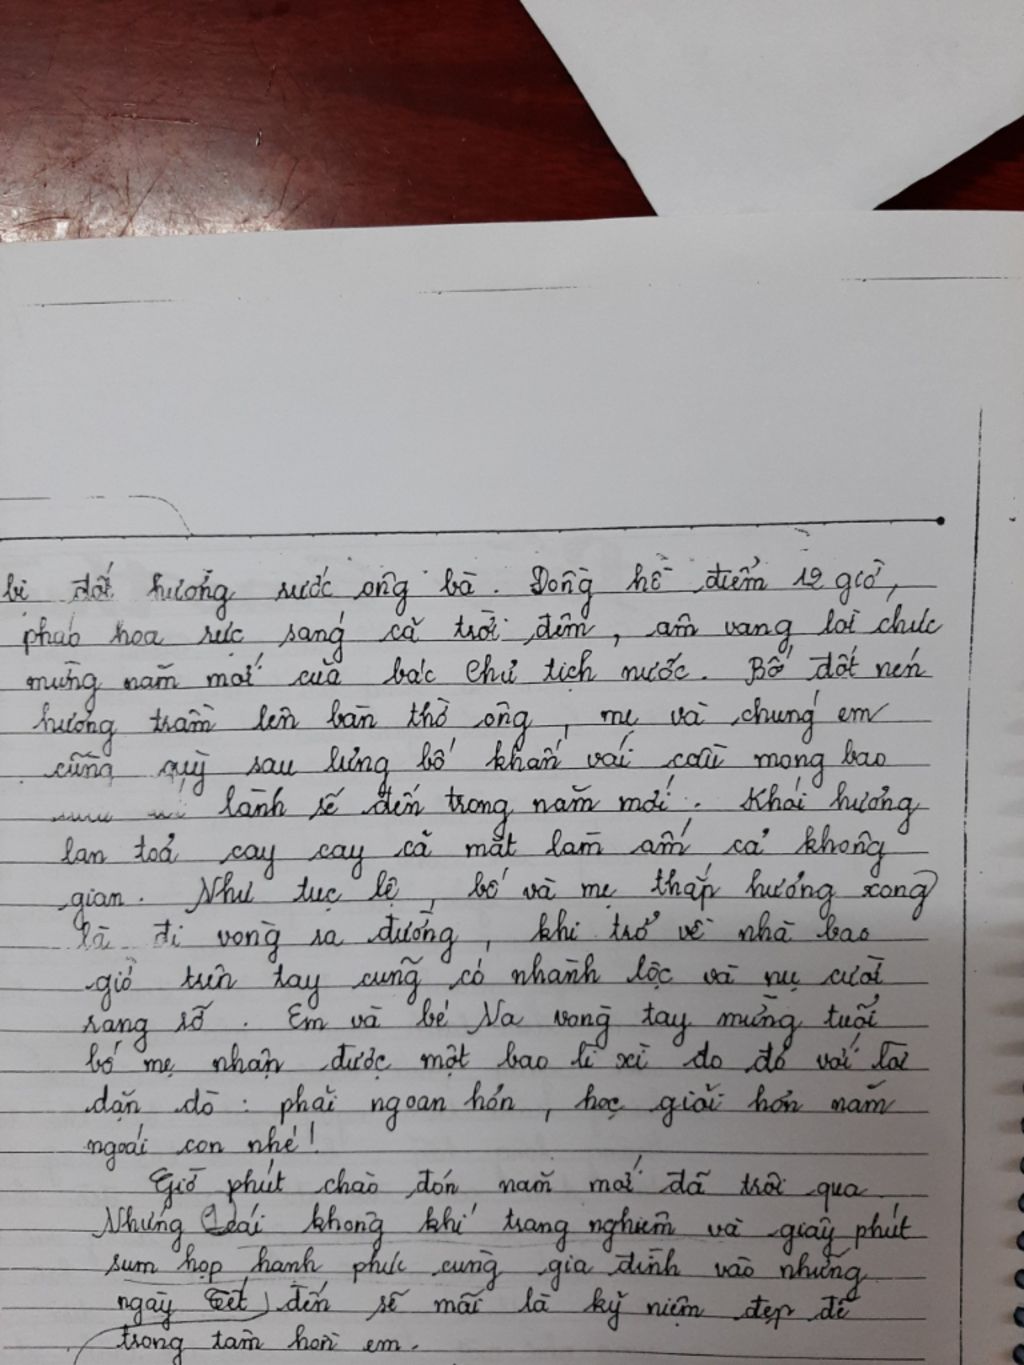 bị đốt hương rước ông bà. Đồng hồ điểm 12 giờ,
pháo hoa rực sáng cả trời đêm, âm vang lời chúc
mừng năm mới của bác Chủ tịch nước. Bố đốt nén
hương trầm lên bàn thờ ông, mẹ và chúng em
cũng quỳ sau lưng bố khấn vái cầu mong bao
lành sẽ đến trong năm mới. Khói hương
lan toả cay cay cả mắt làm ấm cả không
gian. Như tục lệ, bố và mẹ thắp hương xong
là đi vòng ra đường, khi trở về nhà bao
giờ trên tay cũng có nhành lộc và nụ cười
rạng rỡ. Em và bé Na vòng tay mừng tuổi
bố mẹ nhận được một bao lì xì đo đỏ với lời
dặn dò: phải ngoan hơn, học giỏi hơn năm
ngoái con nhé!
Giờ phút chào đón năm mới đã trôi qua
Nhưng cái không khí trang nghiêm và giây phút
sum họp hạnh phúc cùng gia đình vào những
ngày Tết đến sẽ mãi là kỷ niệm đẹp đẽ
trong tâm hồn em.